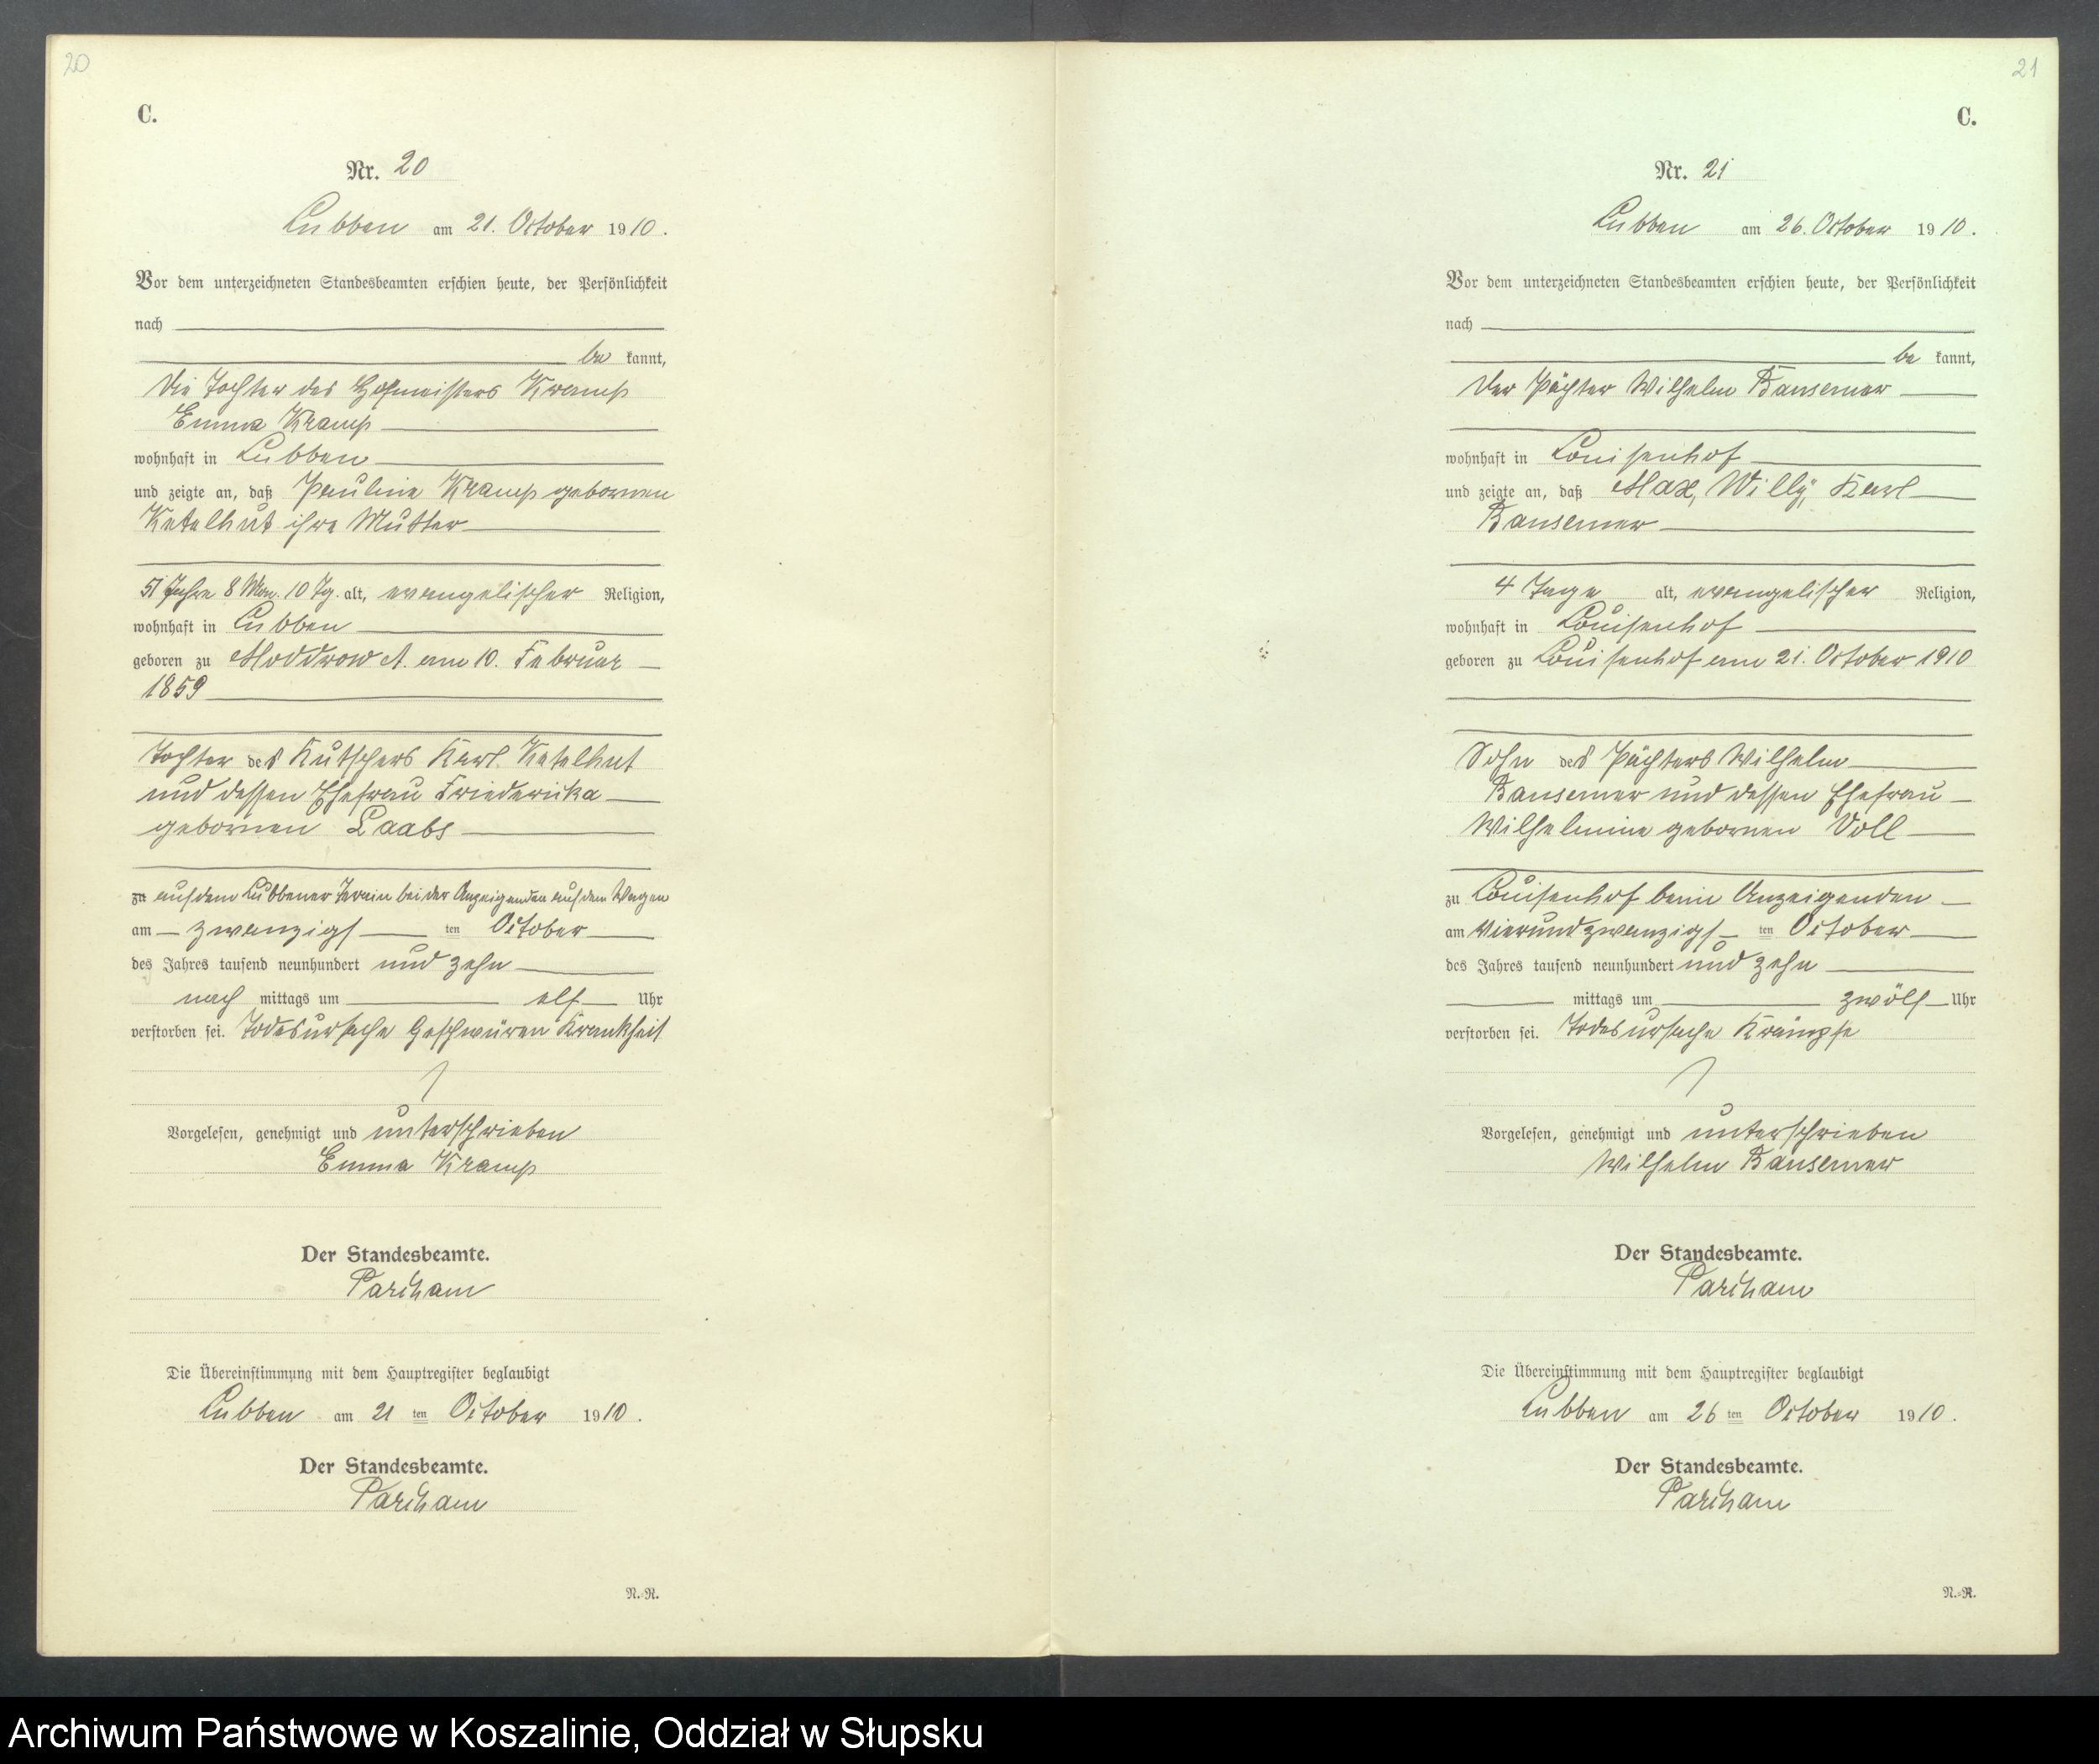 20
C.
Nr. 20
Lubben am 21. October 1910.
Vor dem unterzeichneten Standesbeamten erschien heute, der Persönlichkeit
nach
be kannt,
die Tochter des Hofmeisters Kramp
Emma Kramp
wohnhaft in Lubben
und zeigte an, daß Pauline Kramp gebornen
Ketelhut ihre Mutter
51 Jahre 8 Mon. 10 Tg. alt, evangelischer Religion,
wohnhaft in Lubben
geboren zu Moddrow A. am 10. Februar
1859
Tochter des Kutschers Karl Ketelhut
und dessen Ehefrau Friedericka
gebornen Laabs
zu auf dem Lubbener Terain bei der Anzeigenden auf dem Wagen
am zwanzigsten October
des Jahres tausend neunhundert und zehn
nach mittags um elf Uhr
verstorben sei. Todesursache Geschwüren Krankheit
Vorgelesen, genehmigt und unterschrieben
Emma Kramp
Der Standesbeamte.
Die Übereinstimmung mit dem Hauptregister beglaubigt
Lubben am 21 ten October 1910.
Der Standesbeamte.
N.-R.
21
C.
Nr. 21
Lubben am 26. October 1910.
Vor dem unterzeichneten Standesbeamten erschien heute, der Persönlichkeit
nach
be kannt,
der Pächter Wilhelm Bansemer
wohnhaft in Louisenhof
und zeigte an, daß Max, Willy, Karl
Bansemer
4 Tage alt, evangelischer Religion,
wohnhaft in Louisenhof
geboren zu Louisenhof am 21. October 1910
Sohn des Pächters Wilhelm
Bansemer und dessen Ehefrau
Wilhelmine gebornen Voll
zu Louisenhof beim Anzeigenden
am vierundzwanzigsten October
des Jahres tausend neunhundert und zehn
mittags um zwölf Uhr
verstorben sei. Todesursache Krämpfe
Vorgelesen, genehmigt und unterschrieben
Wilhelm Bansemer
Der Standesbeamte.
Die Übereinstimmung mit dem Hauptregister beglaubigt
Lubben am 26 ten October 1910.
Der Standesbeamte.
N.-R.
Archiwum Państwowe w Koszalinie, Oddział w Słupsku